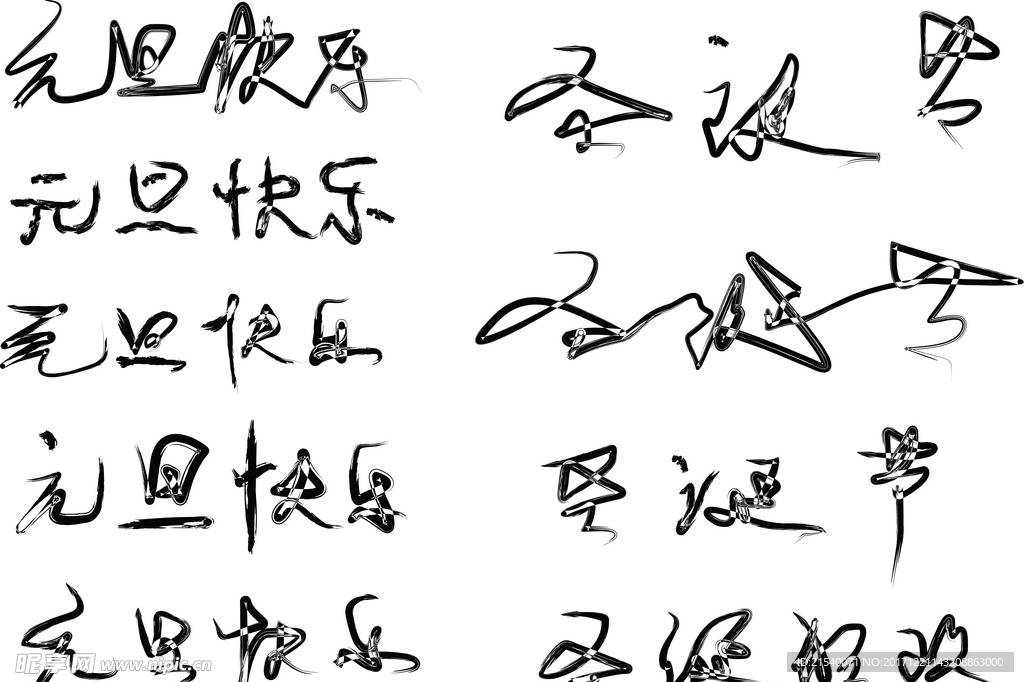 元旦快乐
元旦快乐
元旦快乐
元旦快乐
元旦快乐
圣诞节
圣诞节
圣诞节
圣诞
昵享网 www.nipic.cn
ID:21540071 NO:20171221143208863000